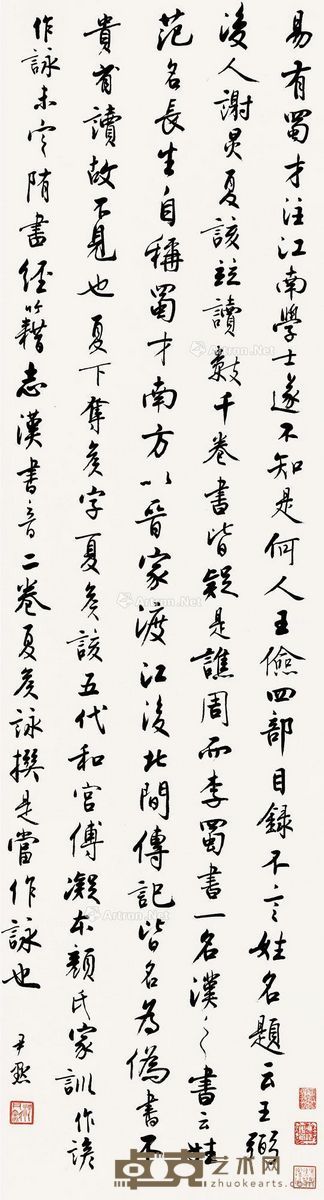 易有蜀才注江南學士遂不知是何人王儉四部目錄不言姓名題云王弼
後人謝炅夏該竝讀數千卷書皆疑是譙周而李蜀書一名漢之書云姓
范名長生自稱蜀才南方以晉家渡江後北間傳記皆名為偽書不
貴省讀故不見也夏下奪矦字夏矦該五代和宮傅凝本顏氏家訓作諺
作詠未定隋書經籍志漢書音二卷夏矦詠撰是當作詠也
尹默
卓克艺术网
www.zhuokearts.com
Artron.Net
Artron.Net
Artron.Net
Artron.Net